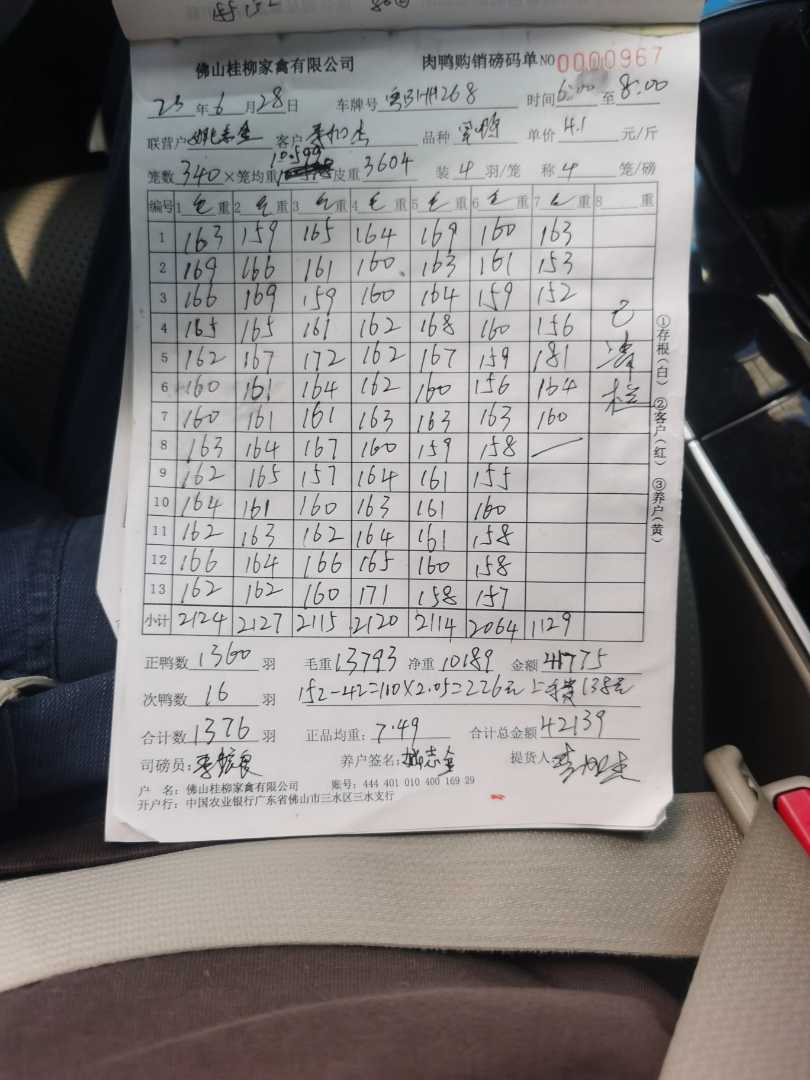 佛山桂柳家禽有限公司 肉鸭购销磅码单 NO 0000967
23年6月28日 车牌号 H268 时间6:00至8:00
联营户 客户 品种 单价 4.1 元/斤
笼数 340 ×笼均重 10.599 皮重 3604 装 4 羽/笼 称 4 笼/磅
编号 1 毛 重 2 毛 重 3 毛 重 4 毛 重 5 毛 重 6 毛 重 7 毛 重 8 重
1 163 159 165 164 169 160 163
2 169 166 161 160 163 161 153
3 166 169 159 160 164 159 152
4 165 165 161 162 168 160 156
5 162 167 172 162 167 159 181
6 160 161 164 162 160 156 164
7 160 161 161 163 163 163 160
8 163 164 167 160 159 158 —
9 162 165 157 164 161 155
10 164 161 160 163 161 160
11 162 163 162 164 161 158
12 166 164 166 165 160 158
13 162 162 160 171 158 157
小计 2124 2127 2115 2120 2114 2064 1129
已清栏
①存根(白) ②客户(红) ③养户(黄)
正鸭数 1360 羽 毛重 13793 净重 10189 金额 41775
次鸭数 16 羽 152-42=110×2.05=226元 上车费138元
合计数 1376 羽 正品均重: 7.49 合计总金额 42139
司磅员: 养户签名: 志金 提货人:
户 名: 佛山桂柳家禽有限公司 账号: 444 401 010 400 169 29
开户行: 中国农业银行广东省佛山市三水区三水支行